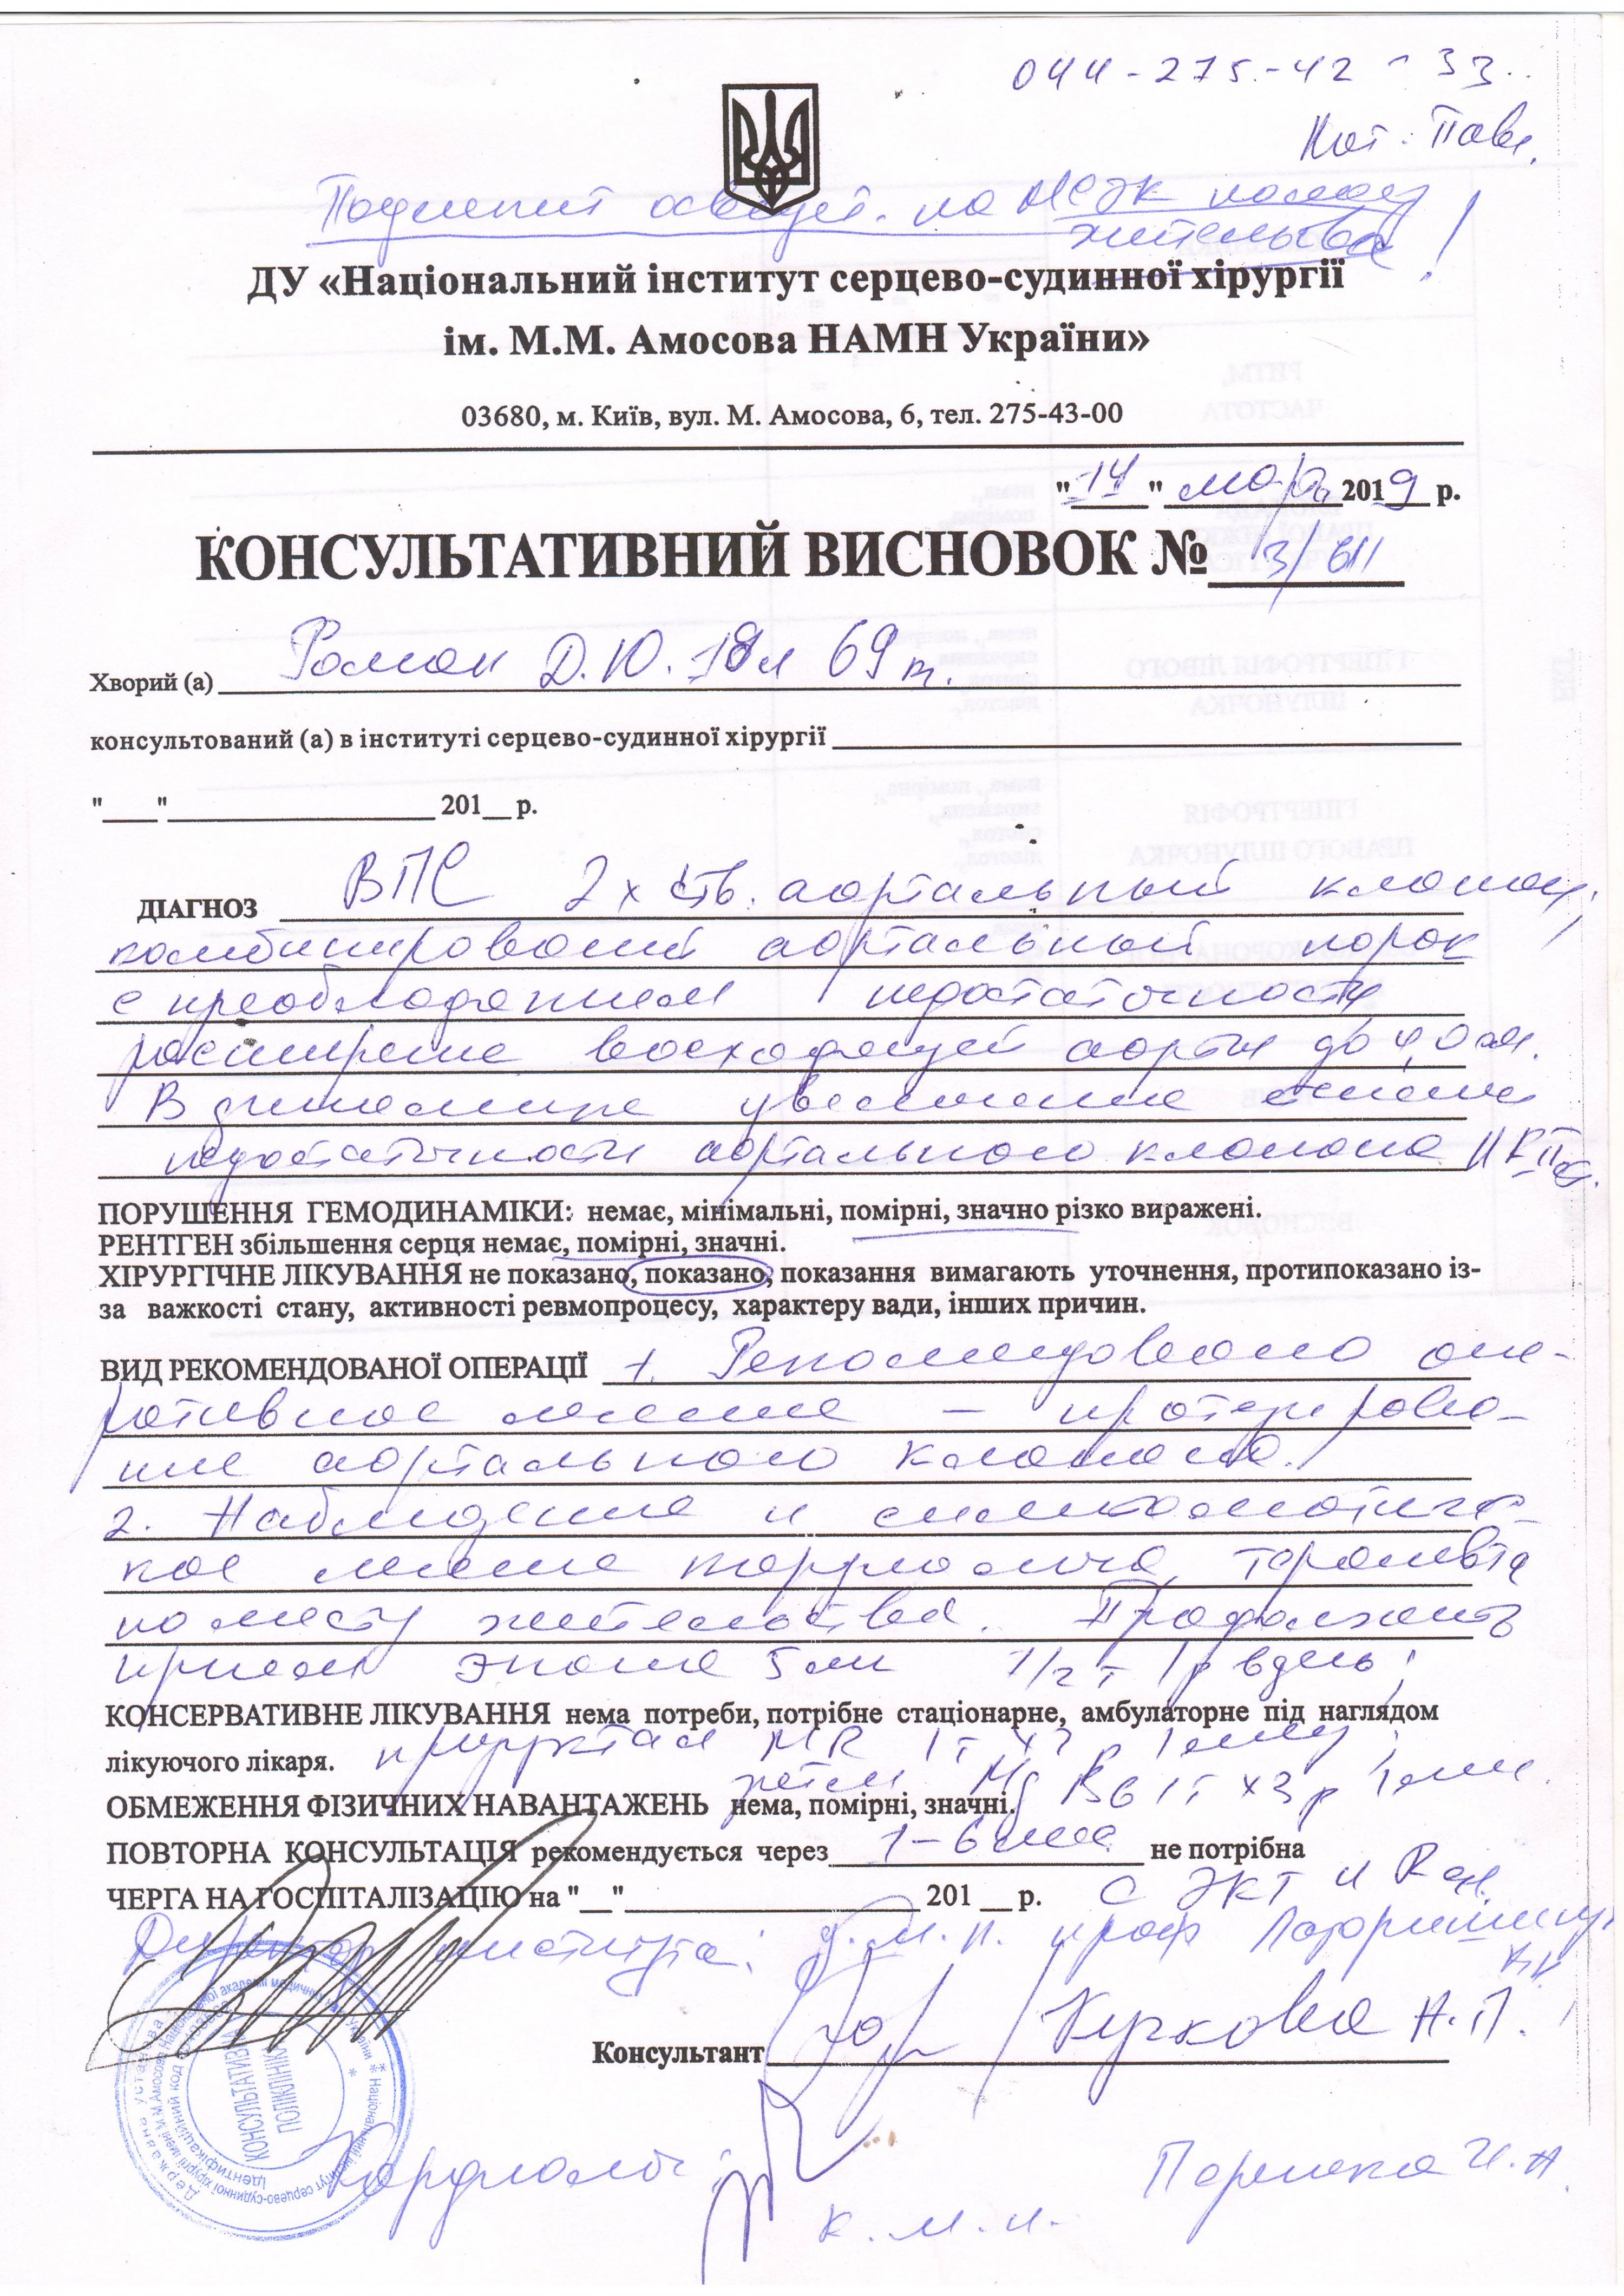 044-275-42-33
Кат. Павл.
Подлежит освидет. на МСЭК по месту
жительства!
ДУ «Національний інститут серцево-судинної хірургії
ім. М.М. Амосова НАМН України»
03680, м. Київ, вул. М. Амосова, 6, тел. 275-43-00
"14" марта 2019 р.
КОНСУЛЬТАТИВНИЙ ВИСНОВОК № 3/611
Хворий (а) Роман Д.Ю. 18л 69 т.
консультований (а) в інституті серцево-судинної хірургії
"____" ____ 201__ р.
ДІАГНОЗ ВПС 2х ств. аортальный клапан,
комбинирований аортальный порок
с преобладанием недостаточности
расширение восходящей аорты до 4,0 см.
В динамике увеличение степени
недостаточности аортального клапана
ПОРУШЕННЯ ГЕМОДИНАМІКИ: немає, мінімальні, помірні, значно різко виражені.
РЕНТГЕН збільшення серця немає, помірні, значні.
ХІРУРГІЧНЕ ЛІКУВАННЯ не показано, показано, показання вимагають уточнення, протипоказано із-
за важкості стану, активності ревмопроцесу, характеру вади, інших причин.
ВИД РЕКОМЕНДОВАНОЇ ОПЕРАЦІЇ 1. Рекомендовано опе-
ративное лечение – протезирова-
ние аортального клапана.
2. Наблюдение и симптоматичес-
кое лечение кардиолога, терапевта
по месту жительства. Продолжить
прием 5 мг 1/2 т 1 р в день,
КОНСЕРВАТИВНЕ ЛІКУВАННЯ нема потреби, потрібне стаціонарне, амбулаторне під наглядом
лікуючого лікаря. предуктал MR 1т х2 р 1 мес,
затем Mg B6 1т х3 р 1 мес.
ОБМЕЖЕННЯ ФІЗИЧНИХ НАВАНТАЖЕНЬ нема, помірні, значні.
ПОВТОРНА КОНСУЛЬТАЦІЯ рекомендується через 1-6 мес не потрібна
ЧЕРГА НА ГОСПІТАЛІЗАЦІЮ на "__" ____ 201 __ р. с ЭКГ и
Директор института: д.м.н. проф Лазоришинец
В.В.
Консультант Кучкова А.П.
Кардиолог
к.м.н.
Державна установа
Національний інститут серцево-судинної хірургії імені М.М.Амосова Національної академії медичних наук України
Ідентифікаційний код
КОНСУЛЬТАТИВНА
ПОЛІКЛІНІКА